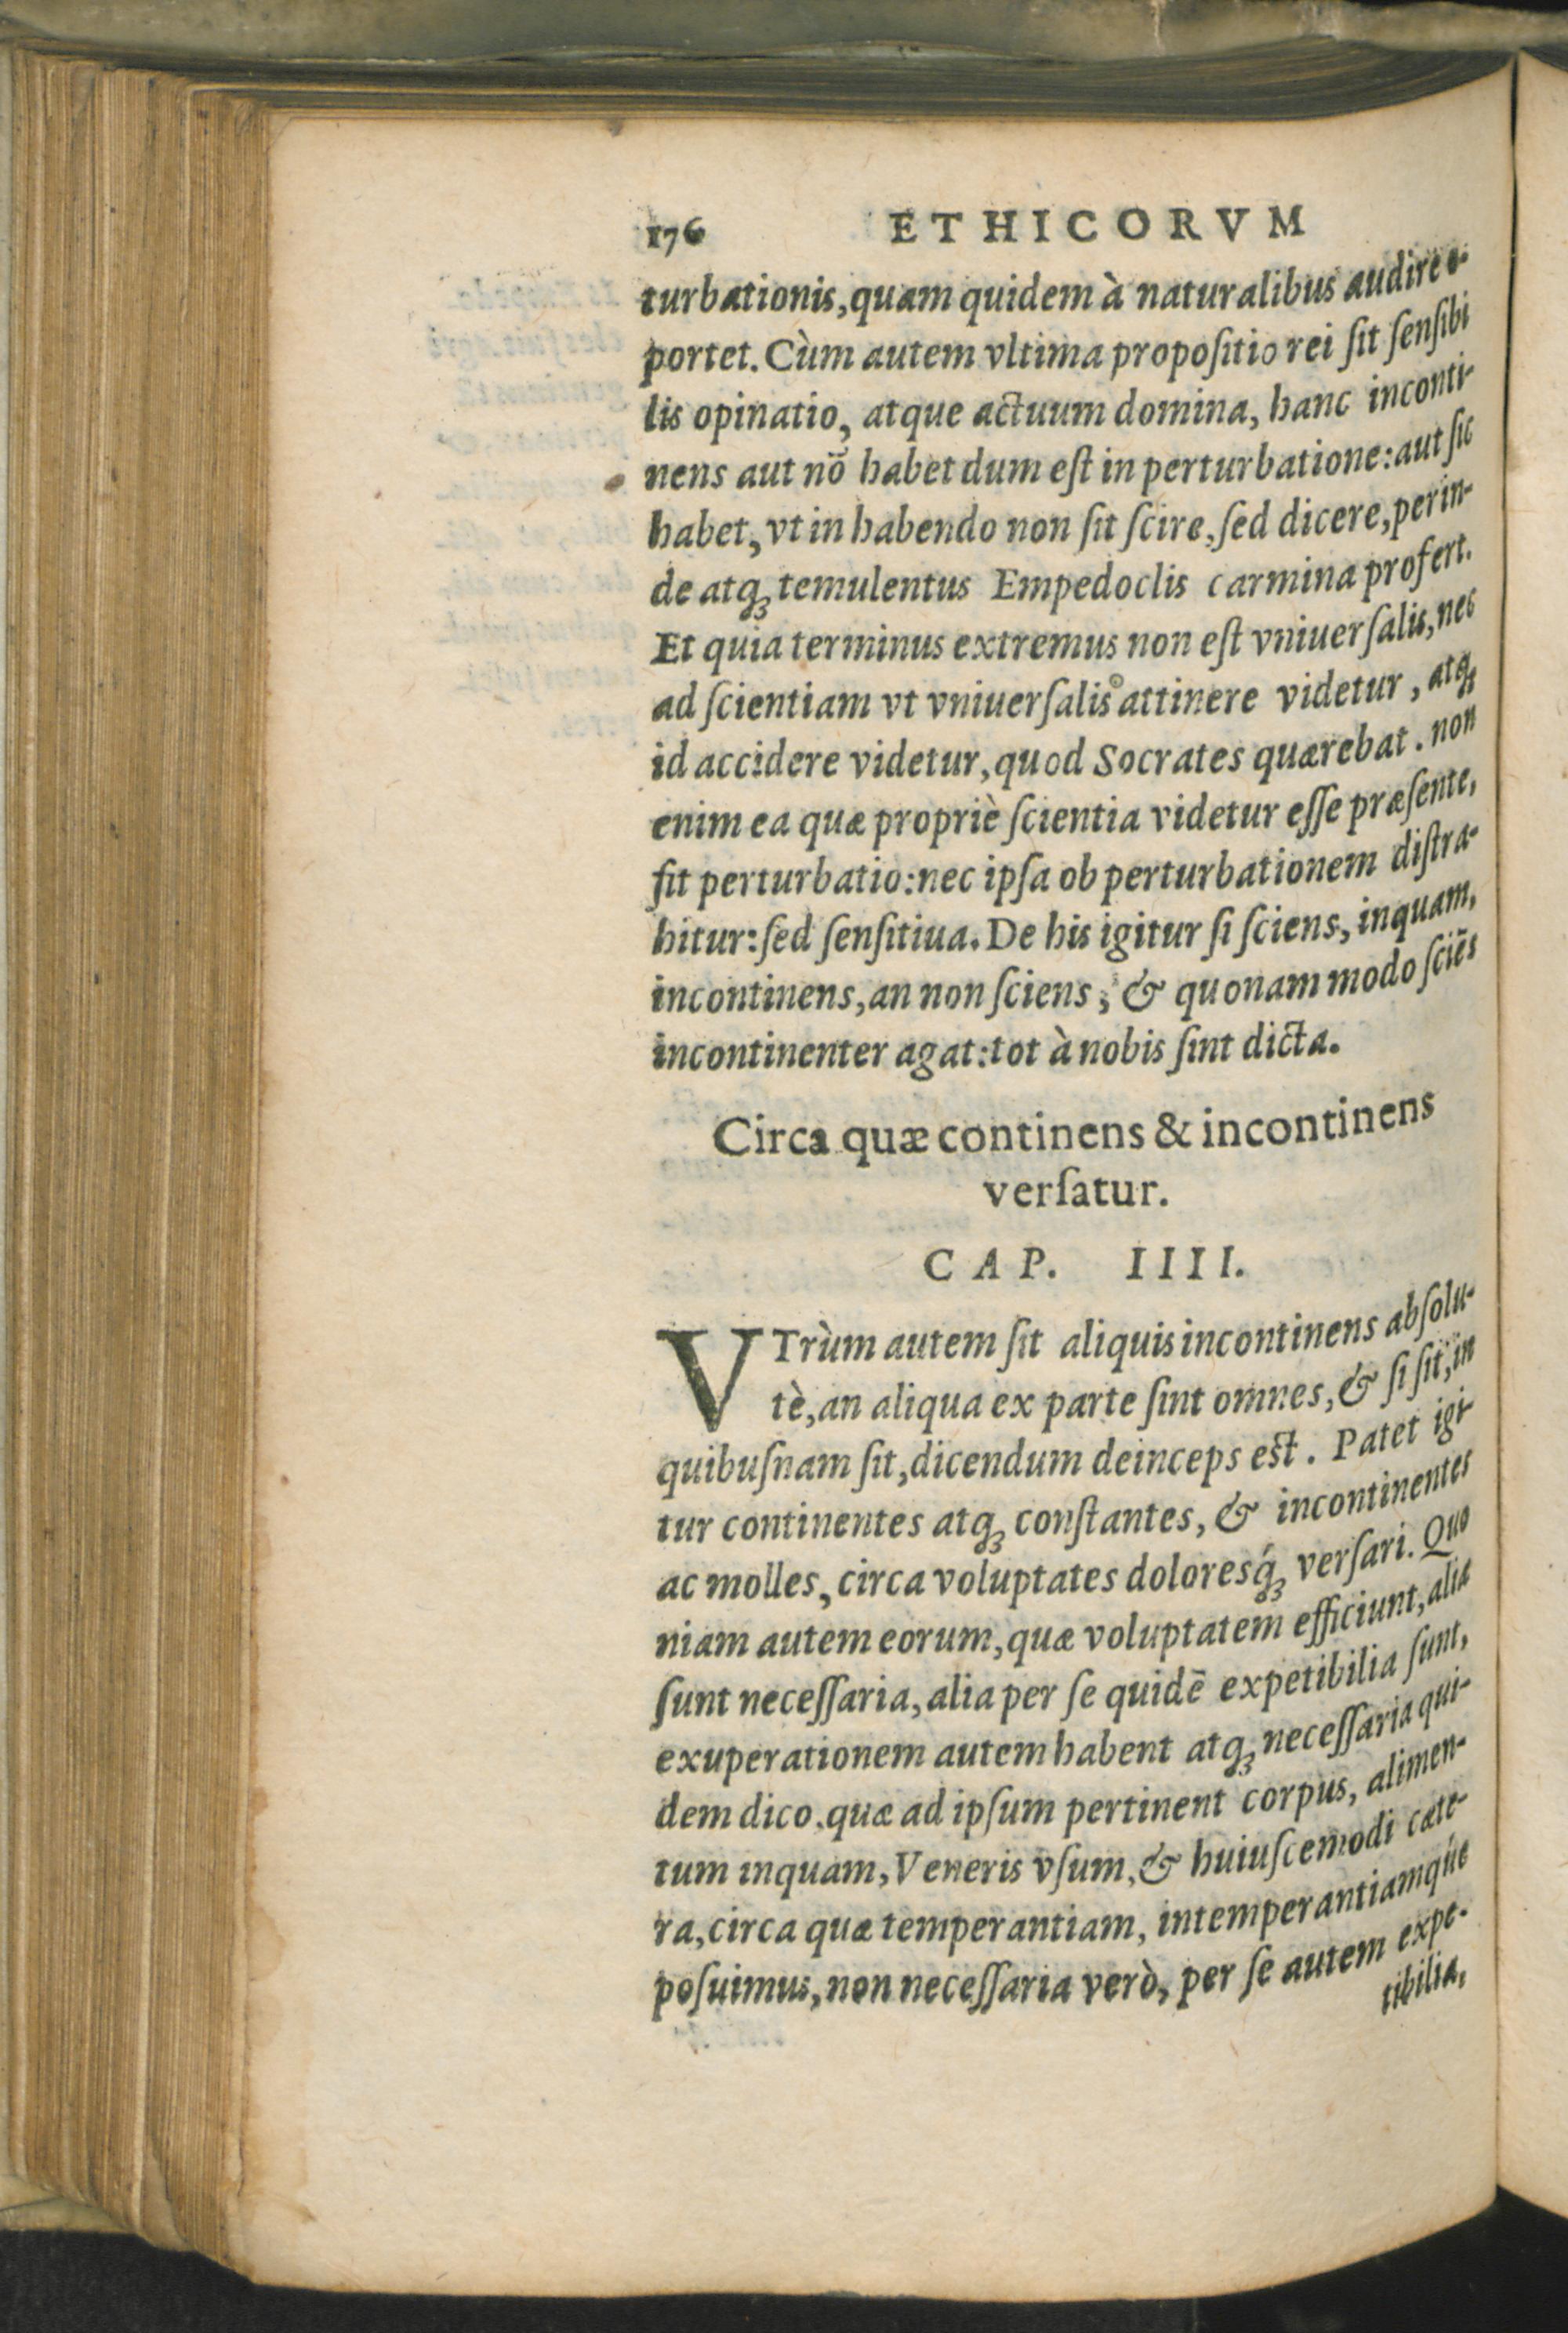 176 ETHICORVM
turbationis, quam quidem à naturalibus audire o-
portet. Cùm autem vltima propoſitio rei ſit ſenſibi
lis opinatio, atque actuum domina, hanc inconti-
nens aut nō habet dum eſt in perturbatione: aut ſic
habet, vt in habendo non ſit ſcire, ſed dicere, perin-
de atqꝫ temulentus Empedoclis carmina profert.
Et quia terminus extremus non eſt vniuerſalis, nec
ad ſcientiam vt vniuerſalis attinere videtur, atqꝫ
id accidere videtur, quod Socrates quærebat. non
enim ea quæ propriè ſcientia videtur eſſe præſente,
fit perturbatio: nec ipſa ob perturbationem diſtra-
hitur: ſed ſenſitiua. De his igitur ſi ſciens, inquam,
incontinens, an non ſciens, & quonam modo ſciēs
incontinenter agat: tot à nobis ſint dicta.
Circa quæ continens & incontinens
verſatur.
CAP. IIII.
VTrùm autem ſit aliquis incontinens abſolu-
tè, an aliqua ex parte ſint omnes, & ſi ſit, in
quibuſnam ſit, dicendum deinceps eſt. Patet igi-
tur continentes atqꝫ conſtantes, & incontinentes
ac molles, circa voluptates doloresq́ꝫ verſari. Quo
niam autem eorum, quæ voluptatem efficiunt, alia
ſunt neceſſaria, alia per ſe quidē expetibilia ſunt,
exuperationem autem habent atqꝫ neceſſaria qui-
dem dico, quæ ad ipſum pertinent corpus, alimen-
tum inquam, Veneris vſum, & huiuſcemodi cæte-
ra, circa quæ temperantiam, intemperantiamq́ue
poſuimus, non neceſſaria verò, per ſe autem expe-
tibilia,